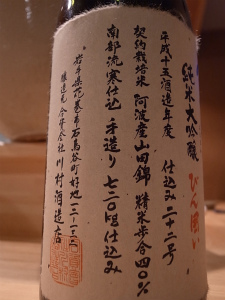 純米大吟醸 びん囲い
平成十五酒造年度 仕込み二十二号
契約栽培米 阿波産山田錦 精米歩合四〇%
南部流寒仕込 手造り 七二〇kg仕込み
岩手県花巻市石鳥谷町好地一二-一三二
醸造元 合資会社 川村酒造店